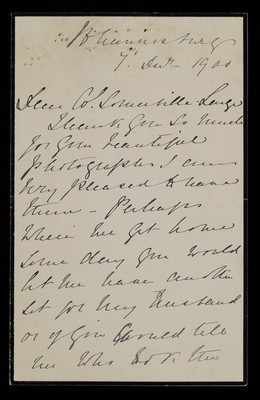 Johannesburg
7. 1900
Dear Col. Somerville Large
Thank you so much
for your beautiful
photographs I am
very pleased to have
them - Perhaps
when we get home
some day you would
let me have another
set for my husband
or if you could tell
me who took them